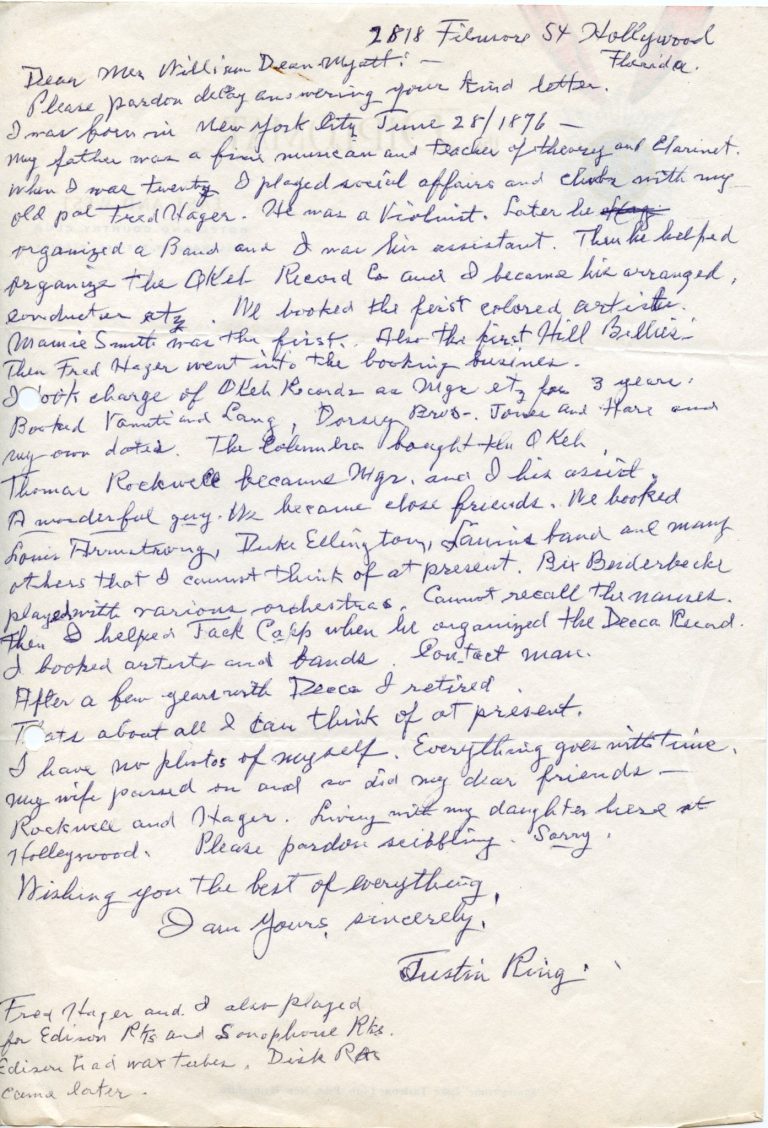 2818 Filmore St Hollywood
Florida.
Dear Mr William Dean Myatt: —
Please pardon delay answering your kind letter.
I was born in New York City June 28/1876 —
my father was a fine musician and teacher of theory and Clarinet.
When I was twenty I played social affairs and clubs with my
old pal Fred Hager. He was a Violinist. Later he
organized a Band and I was his assistant. Then he helped
organize the OKeh Record Co and I became his arranged,
conductor etz. We booked the first colored artists.
Mamie Smith was the first. Also the first Hill Billies.
Then Fred Hager went into the booking busines.
I took charge of OKeh Records as Mgr etz for 3 years.
Booked Vanuti and Lang, Dorsey Bros-. Jones and Hare and
my own dates. The Columbia bought the OKeh.
Thomas Rockwell became Mgr. and I his assist.
A wonderful guy. We became close friends. We booked
Louis Armstrong, Duke Ellington, band and many
others that I cannot think of at present. Bix Beiderbecke
played with various orchestras. Cannot recall the names.
Then I helped Jack Capp when he organized the Decca Record.
I booked artists and bands. Contact man.
After a few years with Decca I retired.
Thats about all I can think of at present.
I have no photos of myself. Everything goes with time.
my wife passed on and so did my dear friends —
Rockwell and Hager. Living with my daughter here at
Holleywood. Please pardon scibbling. Sorry.
Wishing you the best of everything,
I am Yours, sincerely,
Justin Ring.
Fred Hager and I also played
for Edison Rks and Sonophone Rks.
Edison had wax tubes. Disk Rks
came later.